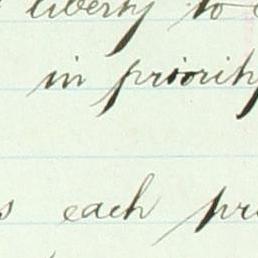 liberty to
in priority
each pr